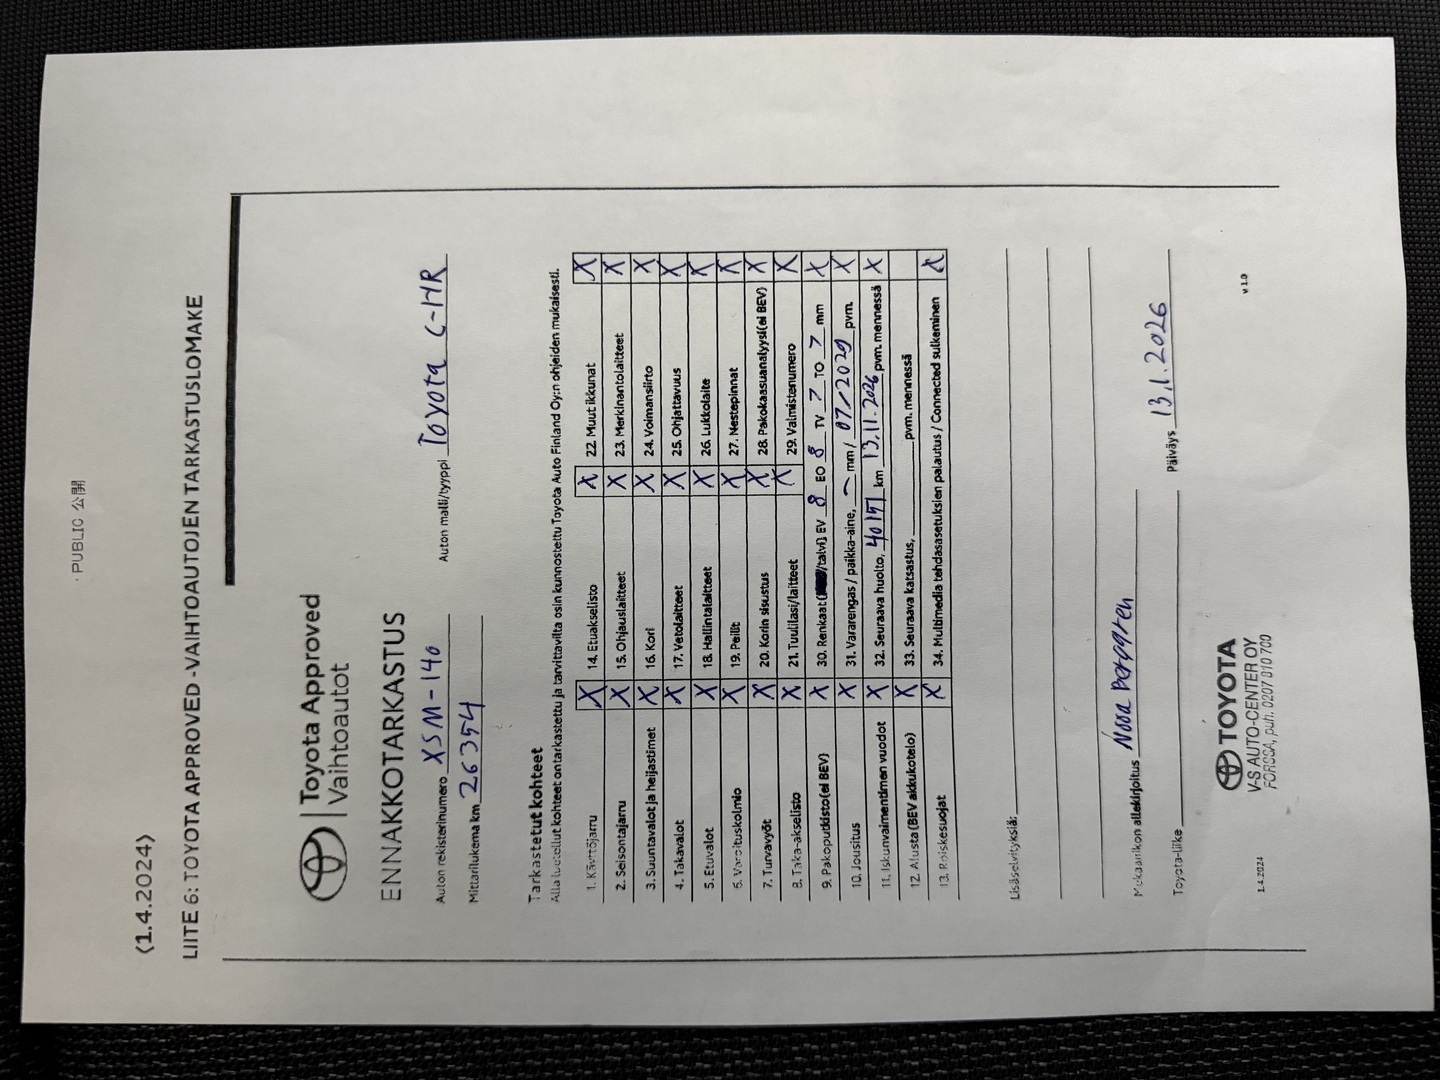 - PUBLIC 公開
(1.4.2024)
LIITE 6: TOYOTA APPROVED -VAIHTOAUTOJEN TARKASTUSLOMAKE
Toyota Approved
Vaihtoautot
ENNAKKOTARKASTUS
Auton rekisterinumero XSM-140 Auton malli/tyyppi Toyota C-HR
Mittarilukema km 26354
Tarkastetut kohteet
Alla luetellut kohteet on tarkastettu ja tarvittavilta osin kunnostettu Toyota Auto Finland Oy:n ohjeiden mukaisesti.
1. Käyttöjarru X 14. Etuakselisto X 22. Muut ikkunat X
2. Seisontajarru X 15. Ohjauslaitteet X 23. Merkinantolaitteet X
3. Suuntavalot ja heijastimet X 16. Kori X 24. Voimansiirto X
4. Takavalot X 17. Vetolaitteet X 25. Ohjattavuus X
5. Etuvalot X 18. Hallintalaitteet X 26. Lukkolaite X
6. Varoituskolmio X 19. Peilit X 27. Nestepinnat X
7. Turvavyöt X 20. Korin sisustus X 28. Pakokaasuanalyysi(ei BEV) X
8. Taka-akselisto X 21. Tuulilasi/laitteet X 29. Valmistenumero X
9. Pakoputkisto(ei BEV) X 30. Renkaat ( /talvi) EV 8 EO 8 TV 7 TO 7 mm X
10. Jousitus X 31. Vararengas / paikka-aine, – mm / 07/2029 pvm. X
11. Iskunvaimentimen vuodot X 32. Seuraava huolto, 40151 km 13.11.2026 pvm. mennessä X
12. Alusta (BEV akkukotelo) X 33. Seuraava katsastus, pvm. mennessä
13. Roiskesuojat X 34. Multimedia tehdasasetuksien palautus / Connected sulkeminen X
Lisäselvityksiä:
Mekaanikon allekirjoitus Noora Berggren
Toyota-liike Päiväys 13.1.2026
TOYOTA
V-S AUTO-CENTER OY
FORSSA, puh. 0207 010 700
1.4.2024 v 1.0